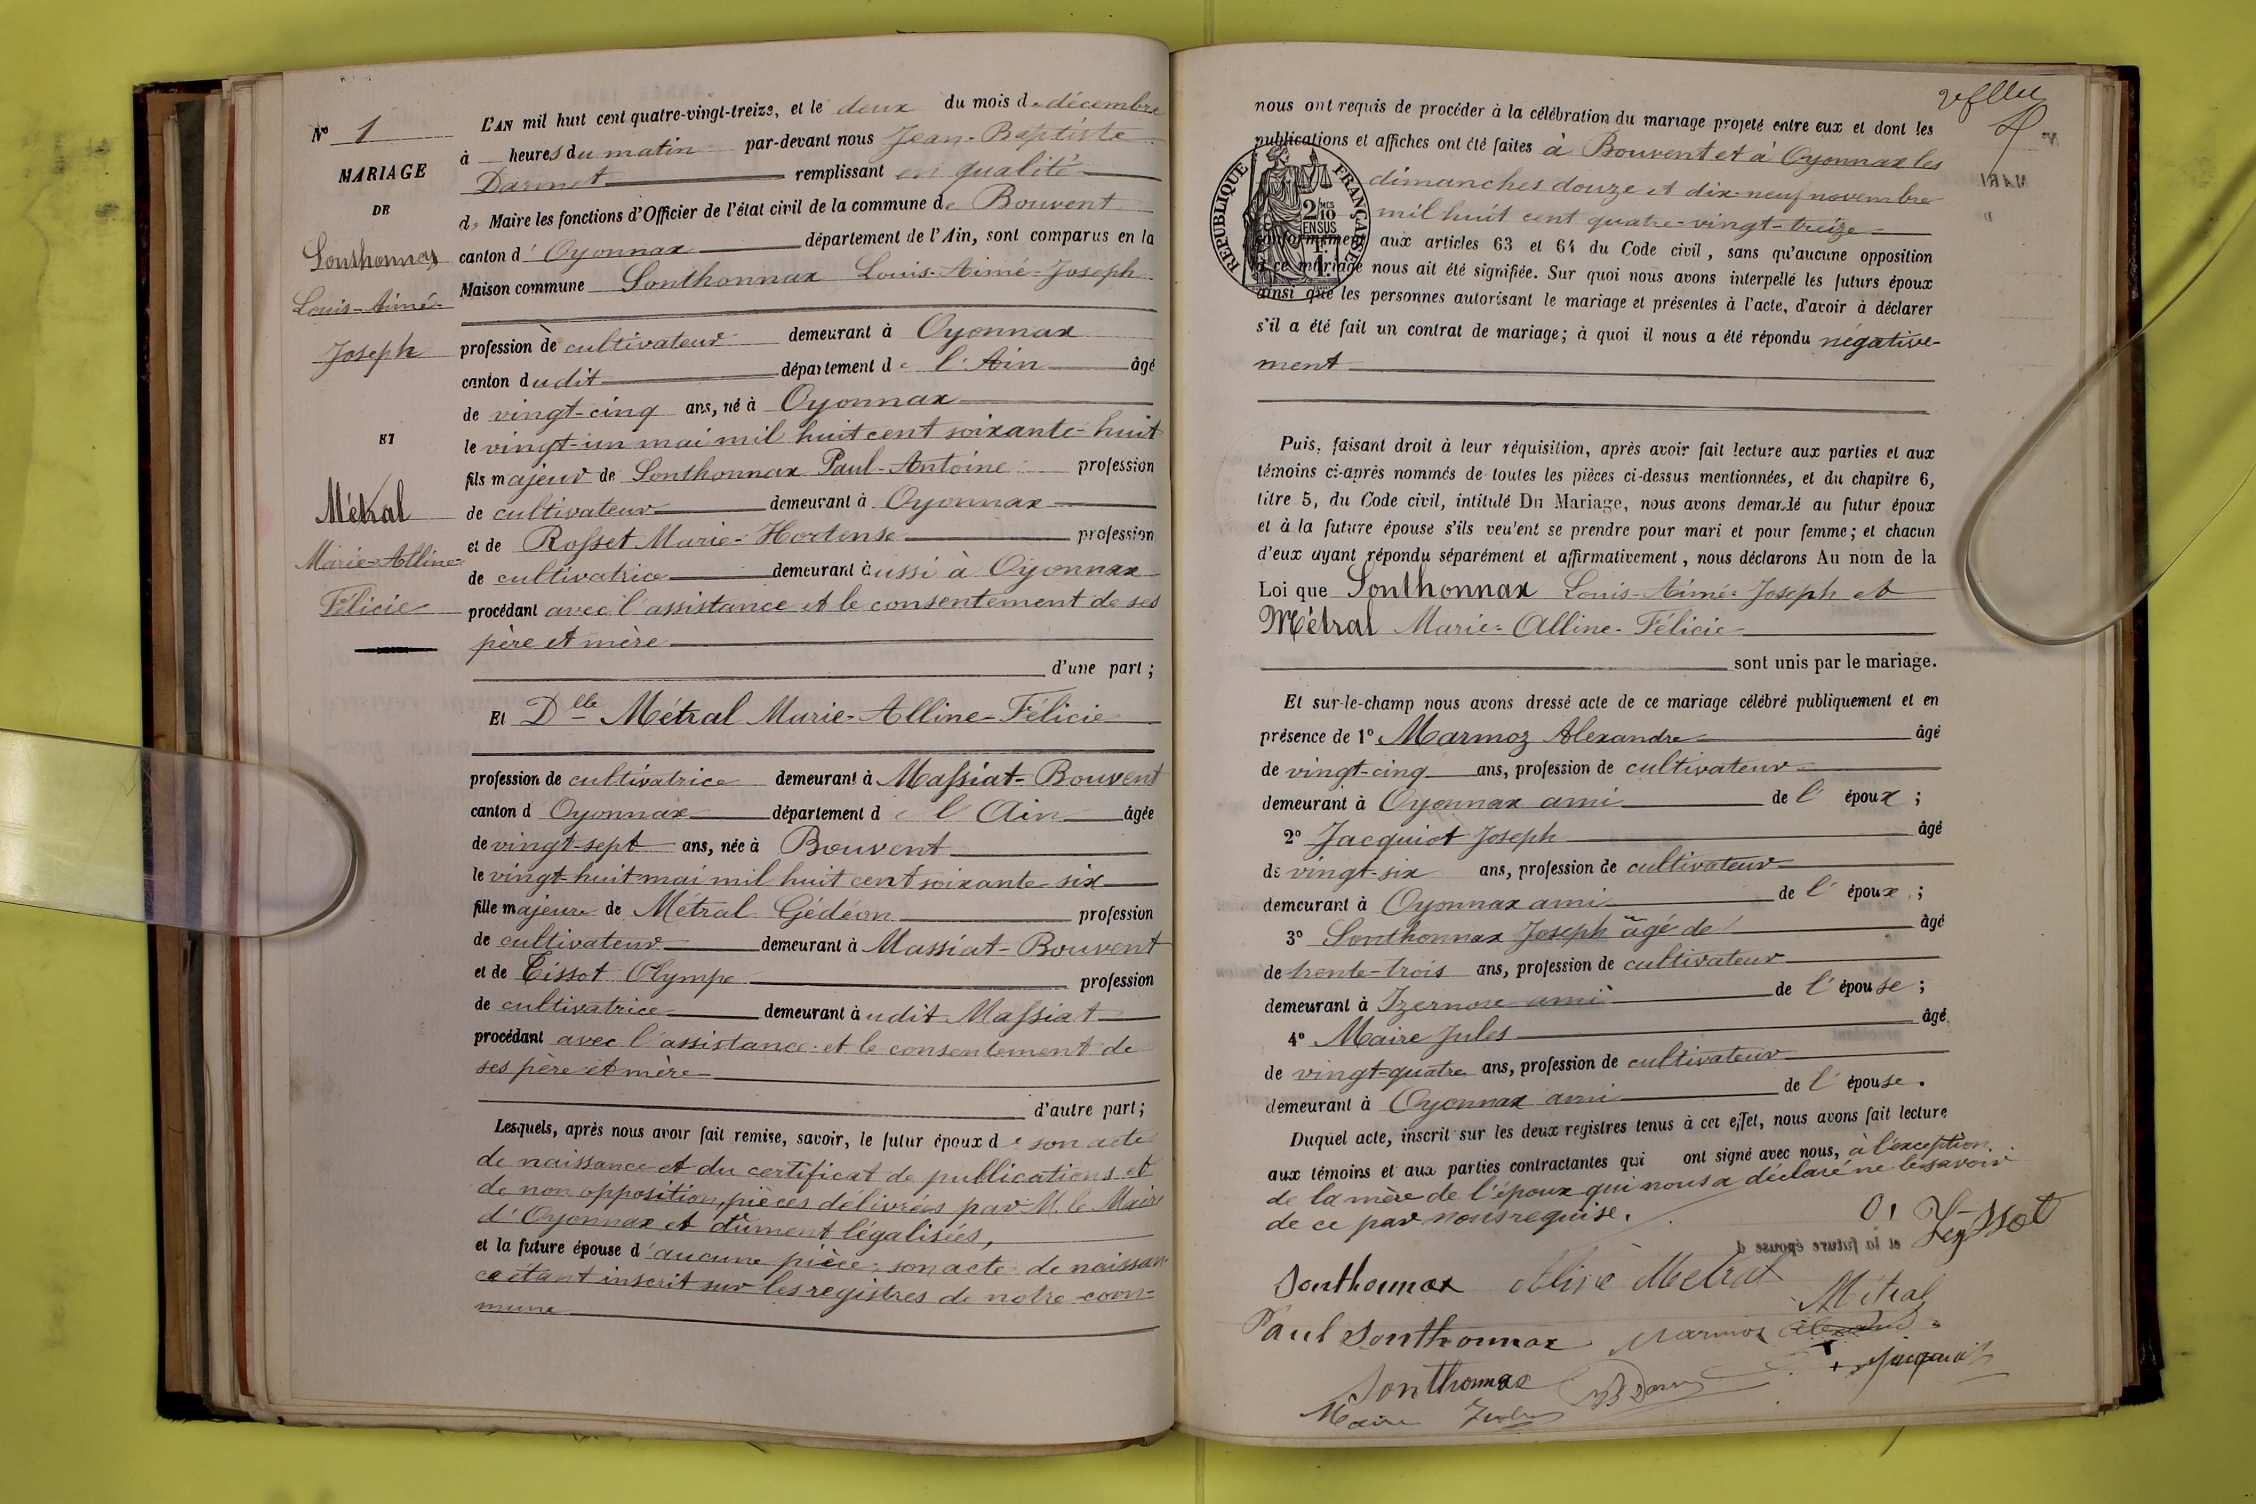 N° 1
MARIAGE
DE
Sonthonnax
Louis-Aimé-
Joseph
ET
Métral
Marie-Alline-
Félicie
L'AN mil huit cent quatre-vingt-treize, et le deux du mois de décembre
à heures du matin par-devant nous Jean-Baptiste
Darmet remplissant en qualité
de Maire les fonctions d'Officier de l'état civil de la commune de Bouvent
canton d'Oyonnax département de l'Ain, sont comparus en la
Maison commune Sonthonnax Louis-Aimé-Joseph
profession de cultivateur demeurant à Oyonnax
canton dudit département de l'Ain âgé
de vingt-cinq ans, né à Oyonnax
le vingt-un mai mil huit cent soixante-huit
fils majeur de Sonthonnax Paul-Antoine profession
de cultivateur demeurant à Oyonnax
et de Rosset Marie-Hortense profession
de cultivatrice demeurant aussi à Oyonnax
procédant avec l'assistance et le consentement de ses
père et mère
d'une part ;
Et Dlle Métral Marie-Alline-Félicie
profession de cultivatrice demeurant à Massiat-Bouvent
canton d'Oyonnax département de l'Ain âgée
de vingt-sept ans, née à Bouvent
le vingt-huit mai mil huit cent soixante-six
fille majeure de Métral Gédéon profession
de cultivateur demeurant à Massiat-Bouvent
et de Tissot Olympe profession
de cultivatrice demeurant audit Massiat
procédant avec l'assistance et le consentement de
ses père et mère
d'autre part ;
Lesquels, après nous avoir fait remise, savoir, le futur époux de son acte
de naissance et du certificat de publications et
de non opposition, pièces délivrées par M. le Maire
d'Oyonnax et dûment légalisées,
et la future épouse d'aucune pièce, son acte de naissan-
ce étant inscrit sur les registres de notre com-
mune
nous ont requis de procéder à la célébration du mariage projeté entre eux et dont les
publications et affiches ont été faites à Bouvent et à Oyonnax les
dimanches douze et dix-neuf novembre
mil huit cent quatre-vingt-treize
conformément aux articles 63 et 64 du Code civil, sans qu'aucune opposition
à ce mariage nous ait été signifiée. Sur quoi nous avons interpellé les futurs époux
ainsi que les personnes autorisant le mariage et présentes à l'acte, d'avoir à déclarer
s'il a été fait un contrat de mariage ; à quoi il nous a été répondu négative-
ment
RÉPUBLIQUE FRANÇAISE
2/10 MES
EN SUS
1 F.
Puis, faisant droit à leur réquisition, après avoir fait lecture aux parties et aux
témoins ci-après nommés de toutes les pièces ci-dessus mentionnées, et du chapitre 6,
titre 5, du Code civil, intitulé Du Mariage, nous avons demandé au futur époux
et à la future épouse s'ils veulent se prendre pour mari et pour femme ; et chacun
d'eux ayant répondu séparément et affirmativement, nous déclarons Au nom de la
Loi que Sonthonnax Louis-Aimé-Joseph et
Métral Marie-Alline-Félicie
sont unis par le mariage.
Et sur-le-champ nous avons dressé acte de ce mariage célébré publiquement et en
présence de 1° Marmoz Alexandre âgé
de vingt-cinq ans, profession de cultivateur
demeurant à Oyonnax ami de l'époux ;
2° Jacquiot Joseph âgé
de vingt-six ans, profession de cultivateur
demeurant à Oyonnax ami de l'époux ;
3° Sonthonnax Joseph âgé de âgé
de trente-trois ans, profession de cultivateur
demeurant à Izernore ami de l'épouse ;
4° Maire Jules âgé
de vingt-quatre ans, profession de cultivateur
demeurant à Oyonnax ami de l'épouse.
Duquel acte, inscrit sur les deux registres tenus à cet effet, nous avons fait lecture
aux témoins et aux parties contractantes qui ont signé avec nous, à l'exception
de la mère de l'époux qui nous a déclaré ne le savoir
de ce par nous requise.
Sonthonnax Aline Métral
Métral
Paul Sonthonnax Marmoz
Jacquiot
Sonthonnax
Maire Jules